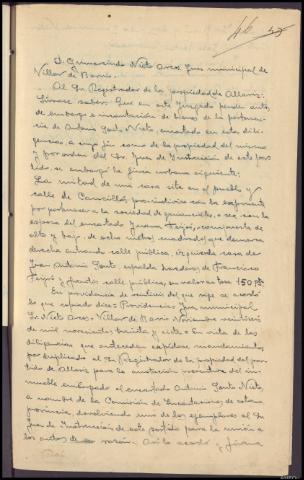 46
D. Gumersindo Nieto Arce Juez municipal de
Villar de Barrio.
Al Sr. Registrador de la propiedad de Allariz.
Hágose saber: Que en este Juzgado pende auto
de embargo e incautación de bienes de la pertenen-
cia de Antonio Nieto, encartado en estas dili-
gencias, a fin como de la propiedad del mismo
y por orden del Sr. Juez de Instrucción de este par-
tido, se embargó la finca urbana siguiente:
La mitad de una casa sita en el pueblo y
calle de proindiviso con la
perteneciente a la sociedad de gananciales, o sea con la
esposa del encartado Feijoo, compuesta de
alto y bajo, de ocho metros cuadrados, que demarca
derecha entrando calle pública, izquierda casa de
Juan Antonio espalda herederos de Francisco
Feijoo y frente calle pública, su valor en tasa 150 Pts
En providencia de del que rige se acordó
lo que copiado dice: Providencia: Juez municipal
Sr. Nieto Arce. Villar de Barrio Noviembre
de mil novecientos treinta y siete. En vista de las
diligencias que anteceden expídase mandamiento
por duplicado al Sr. Registrador de la propiedad del par-
tido de Allariz para la anotación preventiva del in-
mueble embargado al encartado Antonio Nieto
a nombre de la Comisión de Incautaciones de esta
provincia, devolviendo uno de los ejemplares al Sr.
Juez de Instrucción de este partido para la unión a
los autos de su razón. Así lo acordó y firma